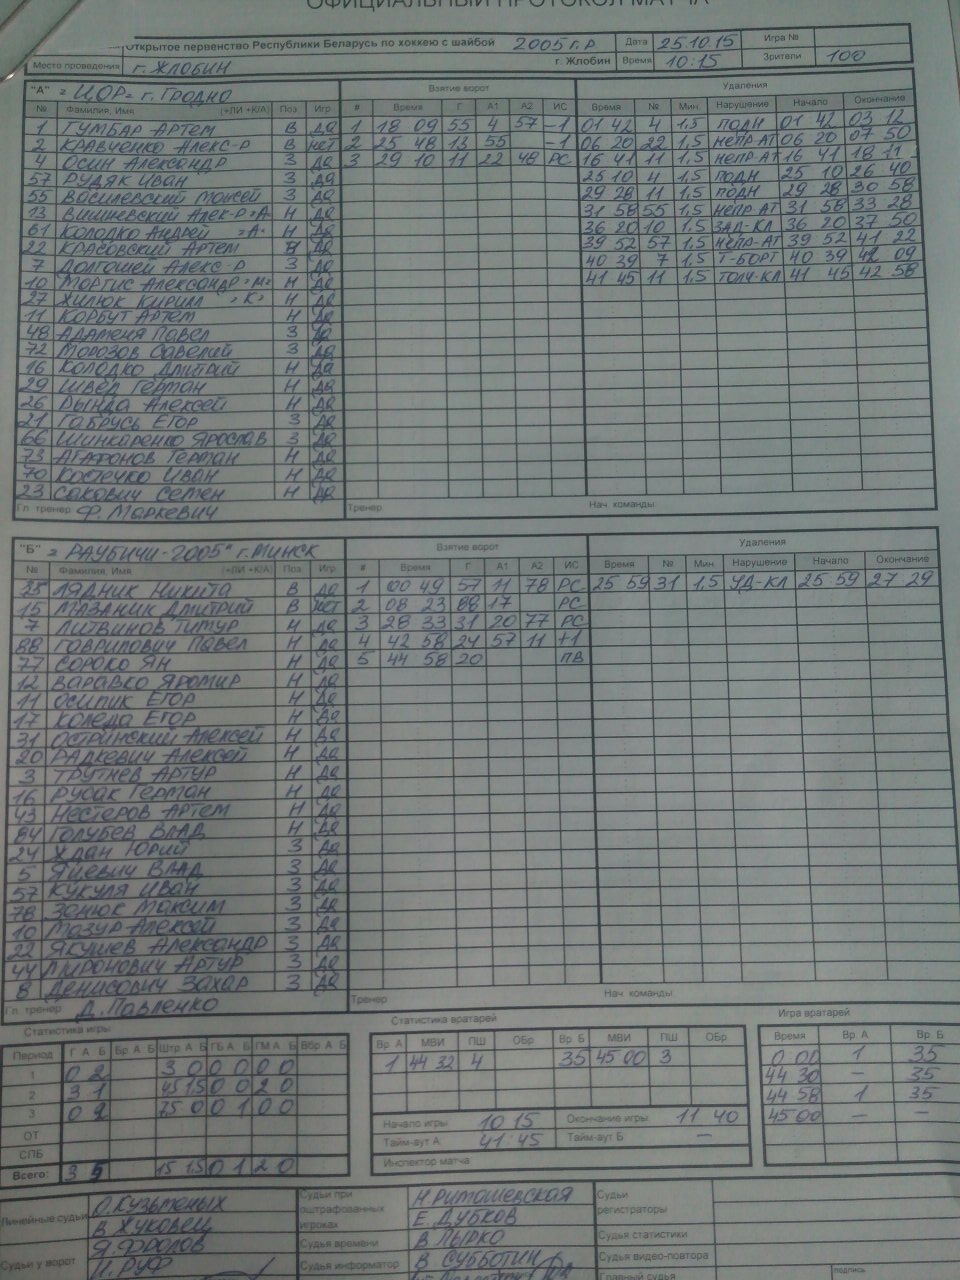 ОФИЦИАЛЬНЫЙ ПРОТОКОЛ МАТЧА
Открытое первенство Республики Беларусь по хоккею с шайбой 2005 г.р. Дата 25.10.15 Игра №
Место проведения г. Жлобин г. Жлобин Время 10:15 Зрители 100
"А" ЦОР г. Гродно Взятие ворот Удаления
№ Фамилия, Имя (+ЛИ +К/А) Поз Игр # Время Г А1 А2 ИС Время № Мин. Нарушение Начало Окончание
1 Гумбар Артем В да 1 18 09 55 4 57 -1 01 42 4 1,5 подн 01 42 03 12
2 Кравченко Алекс-р В нет 2 25 48 13 55 -1 06 20 22 1,5 непр-ат 06 20 07 50
4 Осин Александр З да 3 29 10 11 22 48 РС 16 41 11 1,5 непр-ат 16 41 18 11
57 Рудяк Иван З да 25 10 4 1.5 подн 25 10 26 40
55 Василевский Моисей З да 29 28 11 1,5 подн 29 28 30 58
13 Вишневский Алек-р "А" Н да 31 58 55 1,5 непр-ат 31 58 33 28
61 Колодко Андрей "А" Н да 36 20 10 1.5 зад-кл 36 20 37 50
22 Красовский Артем Н да 39 52 57 1.5 непр-ат 39 52 41 22
7 Долгошей Алекс-р З да 40 39 7 1,5 т-борт 40 39 42 09
10 Мортис Александр Н да 41 45 11 1,5 толч-кл 41 45 42 58
27 Хилюк Кирилл "К" Н да
11 Корбут Артем Н да
48 Адаменя Павел З да
72 Морозов Савелий З да
16 Колодко Дмитрий Н да
29 Швед Герман Н да
26 Рында Алексей Н да
21 Габрусь Егор З да
66 Шинкаренко Ярослав З да
73 Агафонов Герман Н да
70 Костечко Иван Н да
23 Сакович Семен Н да
Гл. тренер Ф. Маркевич Тренер Нач. команды
"Б" "Раубичи-2005" г. Минск Взятие ворот Удаления
№ Фамилия, Имя (+ЛИ +К/А) Поз Игр # Время Г А1 А2 ИС Время № Мин Нарушение Начало Окончание
35 Лядник Никита В да 1 00 49 57 11 78 РС 25 59 31 1,5 уд-кл 25 59 27 29
15 Мазаник Дмитрий В нет 2 08 23 88 17 РС
7 Литвинов Тимур Н да 3 28 33 31 20 77 РС
88 Гаврилович Павел Н да 4 42 58 24 57 11 +1
77 Сороко Ян Н да 5 44 58 20 ПВ
12 Варавко Яромир Н да
11 Осипик Егор Н да
17 Коледа Егор Н да
31 Остринский Алексей Н да
20 Радкевич Алексей Н да
3 Трутнев Артур Н да
16 Русак Герман Н да
43 Нестеров Артем Н да
84 Голубев Влад Н да
24 Ждан Юрий З да
5 Яцевич Влад З да
57 Кукуля Иван З да
78 Занюк Максим З да
10 Мазур Алексей З да
22 Якушев Александр З да
44 Миронович Артур З да
8 Денисович Захар З да
Гл. тренер Д. Павленко Тренер Нач. команды
Статистика игры Статистика вратарей Игра вратарей
Период Г А Б Бр А Б Штр А Б ГБ А Б ГМ А Б Вбр А Б Вр А МВИ ПШ ОБр Вр Б МВИ ПШ ОБр Время Вр. А Вр. Б
1 0 2 3 0 0 0 0 0 1 44 32 4 35 45 00 3 0 00 1 35
2 3 1 4,5 1,5 0 0 2 0 44 30 – 35
3 0 2 7,5 0 0 1 0 0 44 58 1 35
ОТ Начало игры 10 15 Окончание игры 11 40 45 00 – –
СПБ Тайм-аут А 41:45 Тайм-аут Б –
Всего: 3 5 15 1,5 0 1 2 0 Инспектор матча
Линейные судьи О. Кузьменых Судьи при оштрафованных игроках Н. Ритошевская Судьи регистраторы
В. Жуковец Е. Дубков
Судьи у ворот Я. Фролов Судья времени В. Лырко Судьи статистики
Л. Руф Судья информатор В. Субботин Судьи видео-повтора
Главный судья подпись